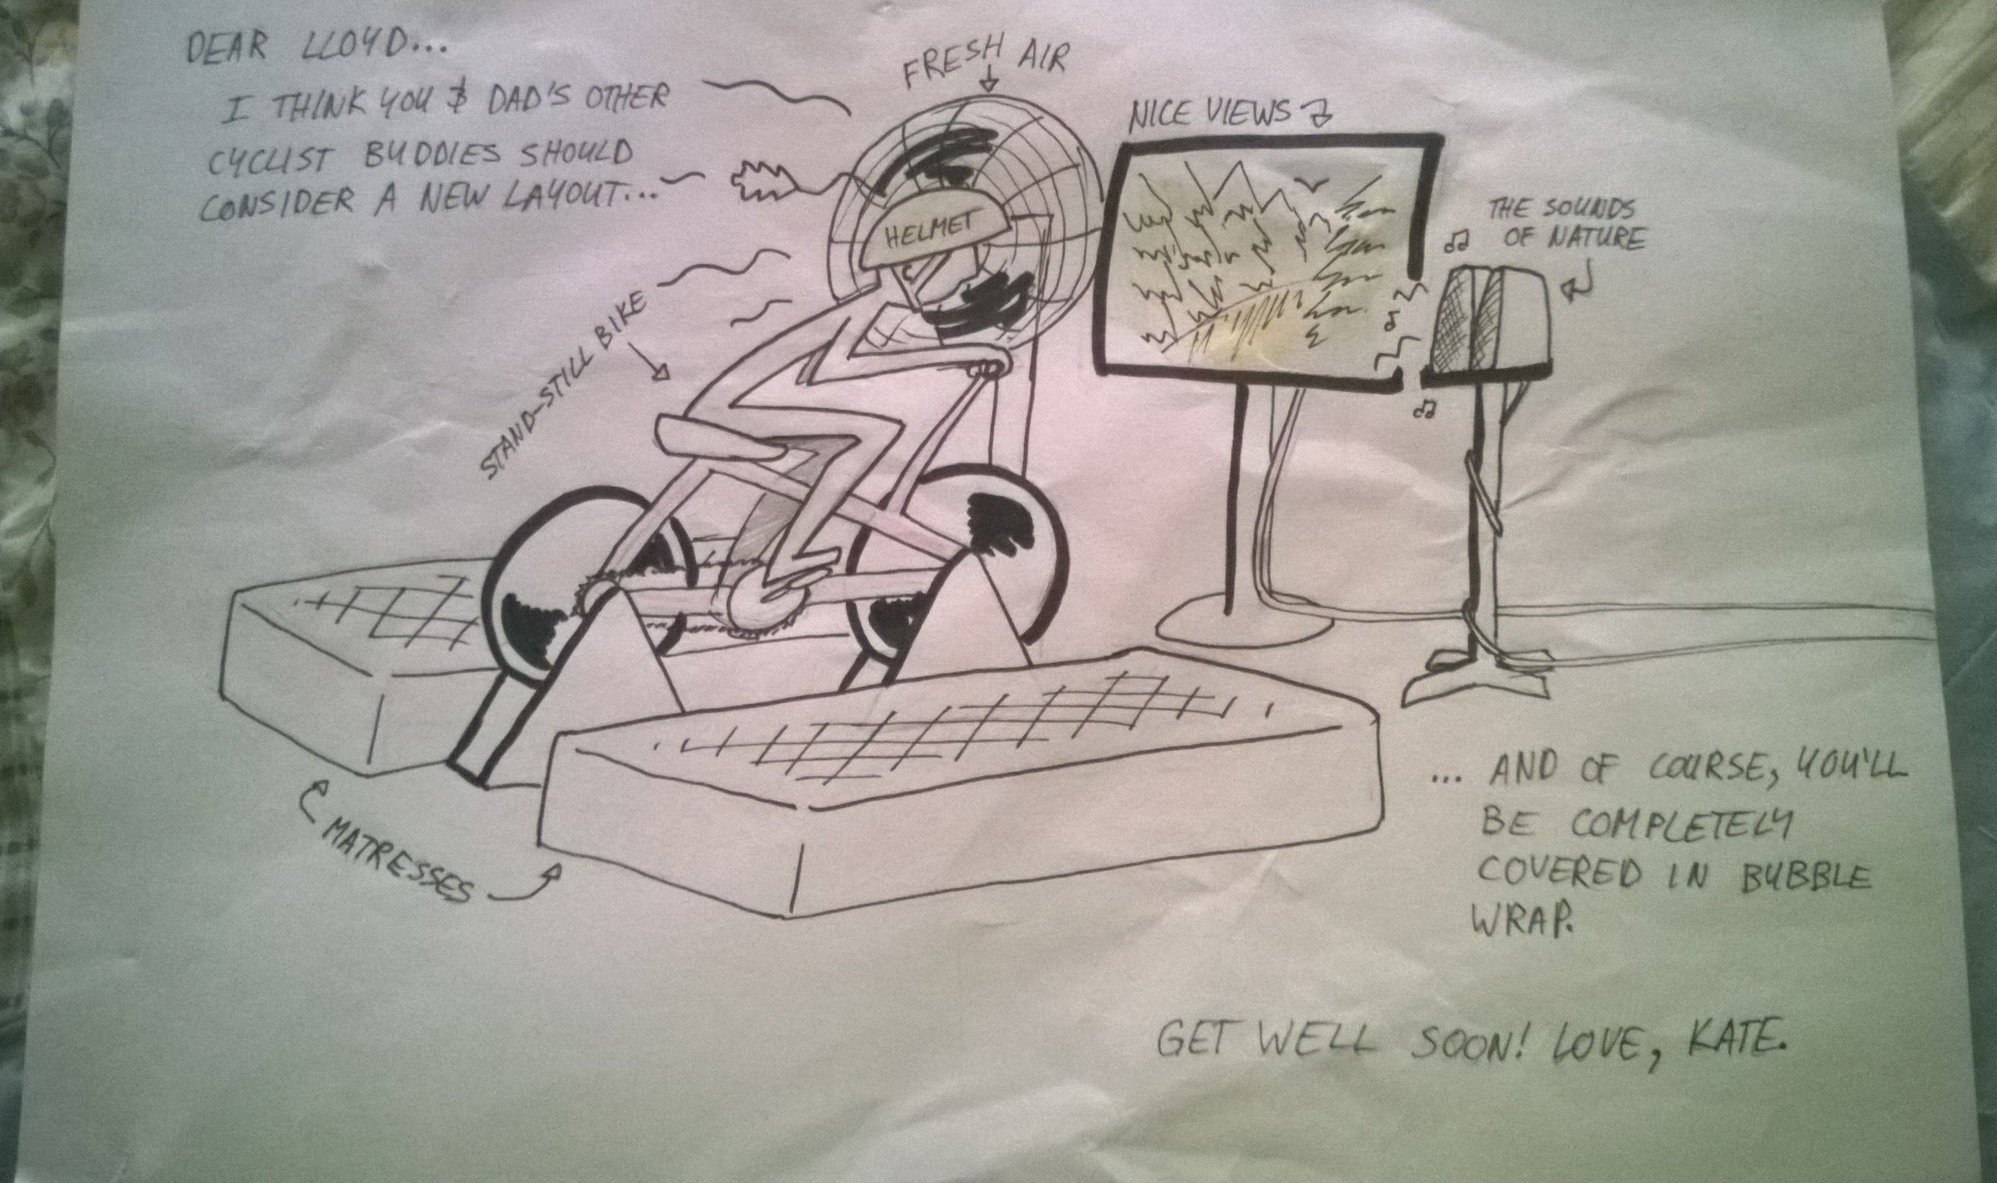 DEAR LLOYD...
I THINK YOU & DAD'S OTHER
CYCLIST BUDDIES SHOULD
CONSIDER A NEW LAYOUT...
FRESH AIR
NICE VIEWS
THE SOUNDS
OF NATURE
HELMET
STAND-STILL BIKE
MATRESSES
... AND OF COURSE, YOU'LL
BE COMPLETELY
COVERED IN BUBBLE
WRAP.
GET WELL SOON! LOVE, KATE.